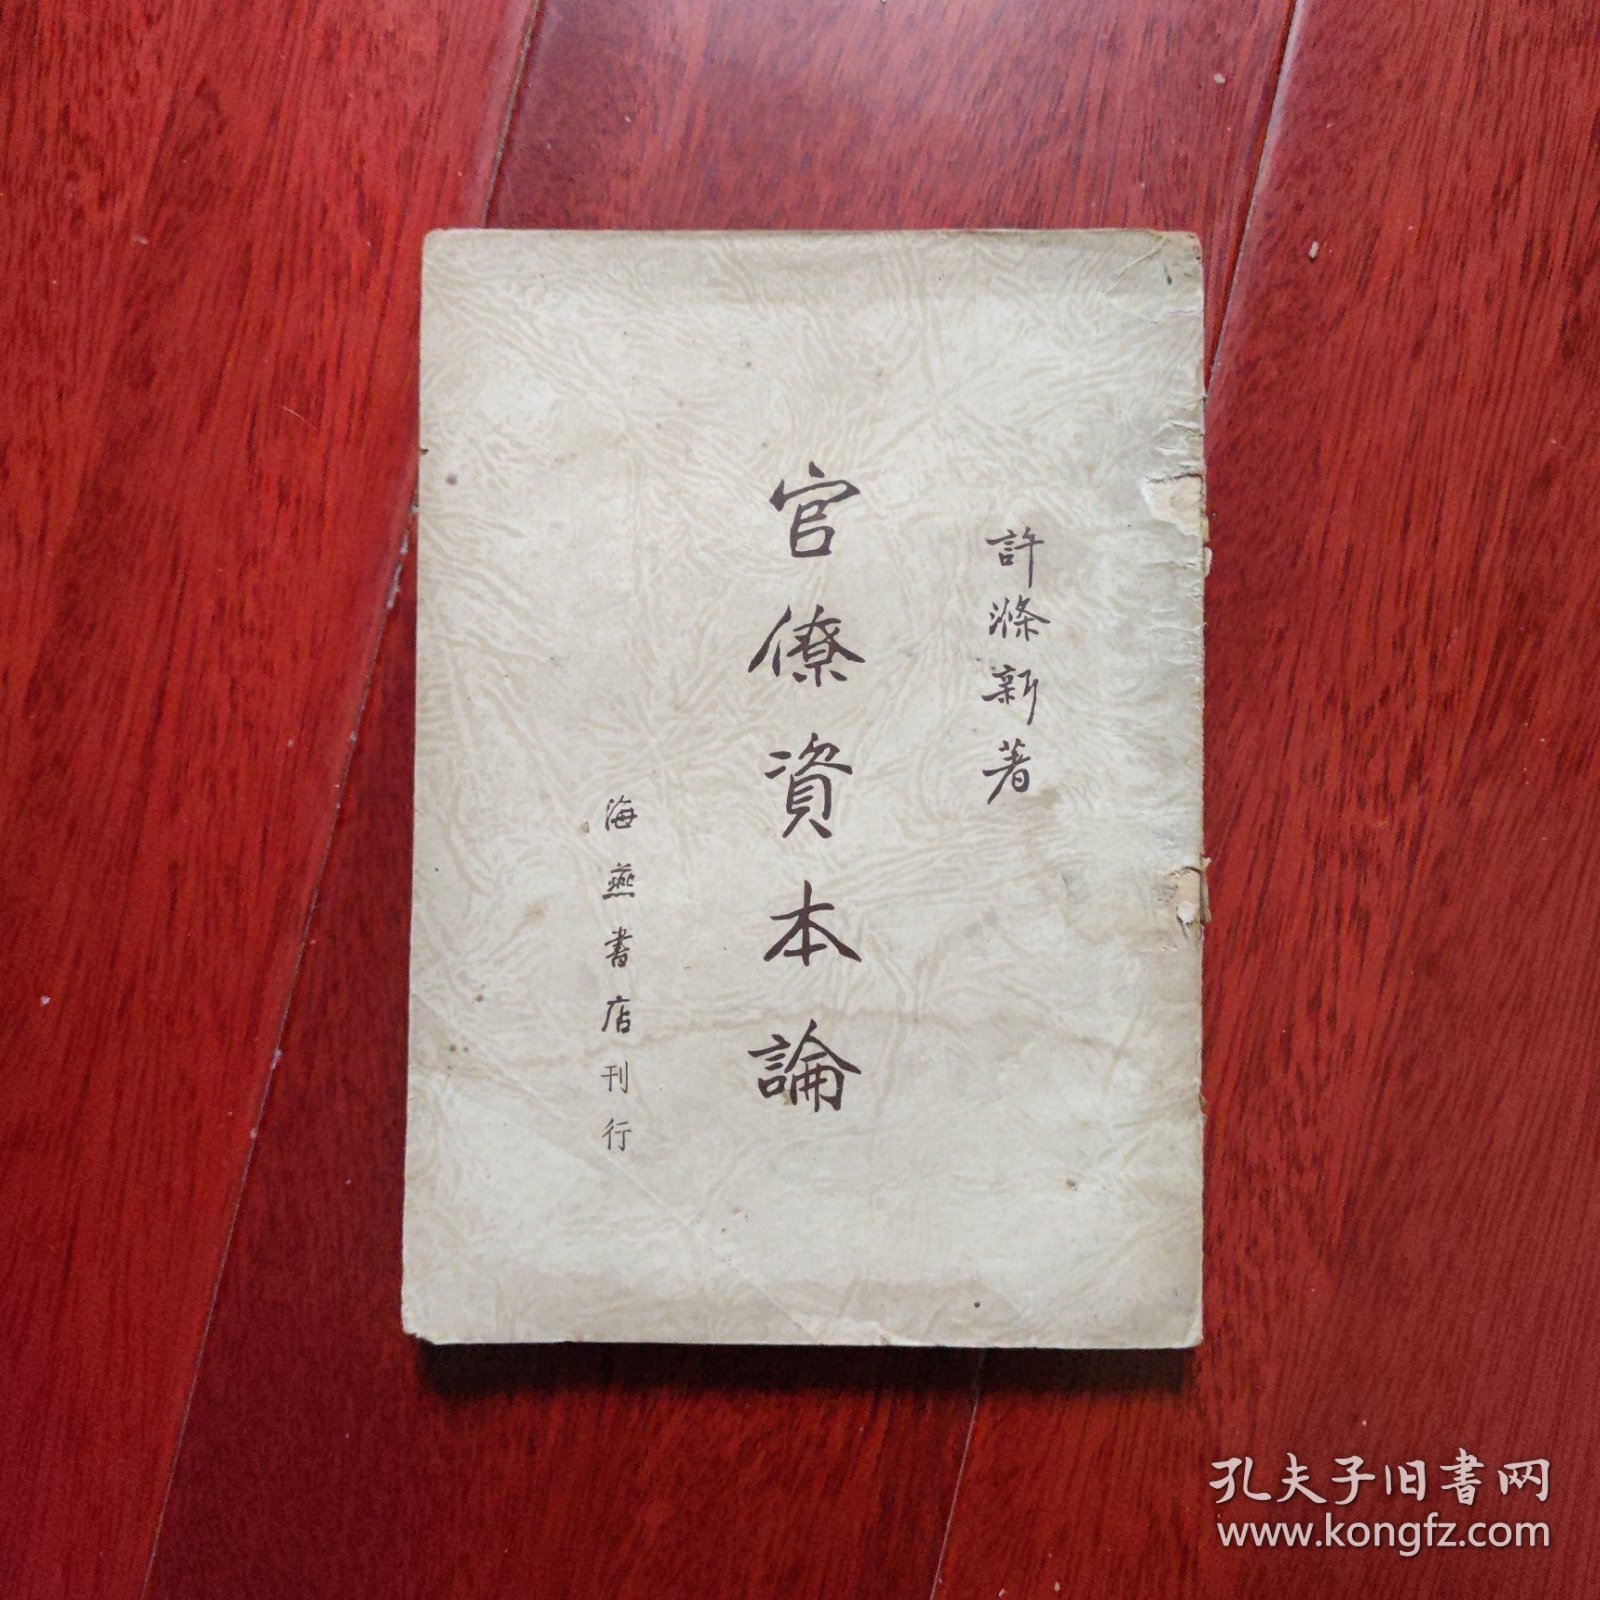 許滌新著
官僚資本論
海燕書店刊行
孔夫子旧書网
www.kongfz.com